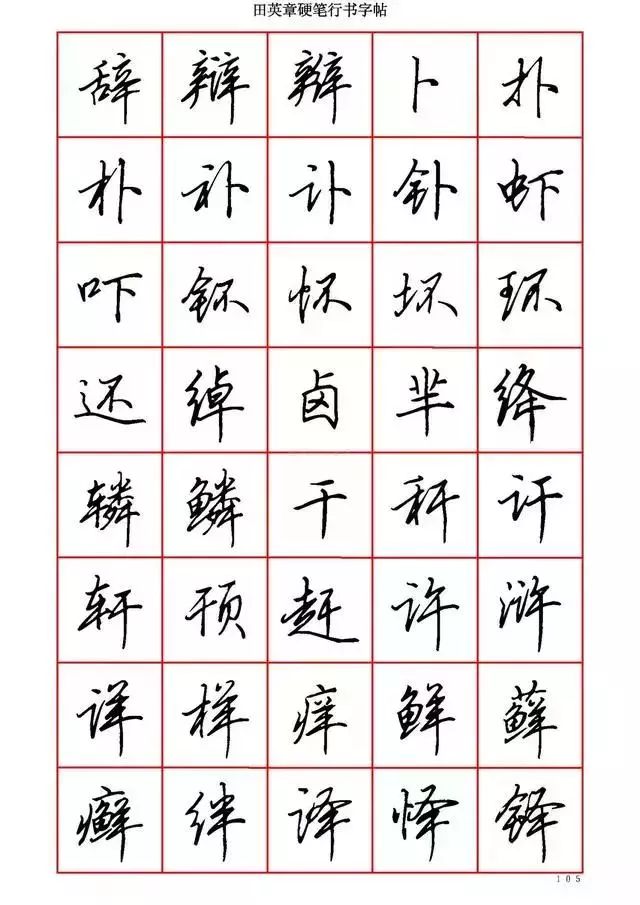 田英章硬笔行书字帖
辞 辩 辨 卜 扑
朴 补 讣 钋 虾
吓 钚 怀 坏 环
还 绰 卤 芈 绛
辚 鳞 干 秆 讦
轩 顸 赶 许 浒
详 样 痒 鲜 藓
癣 绊 译 怿 铎
105